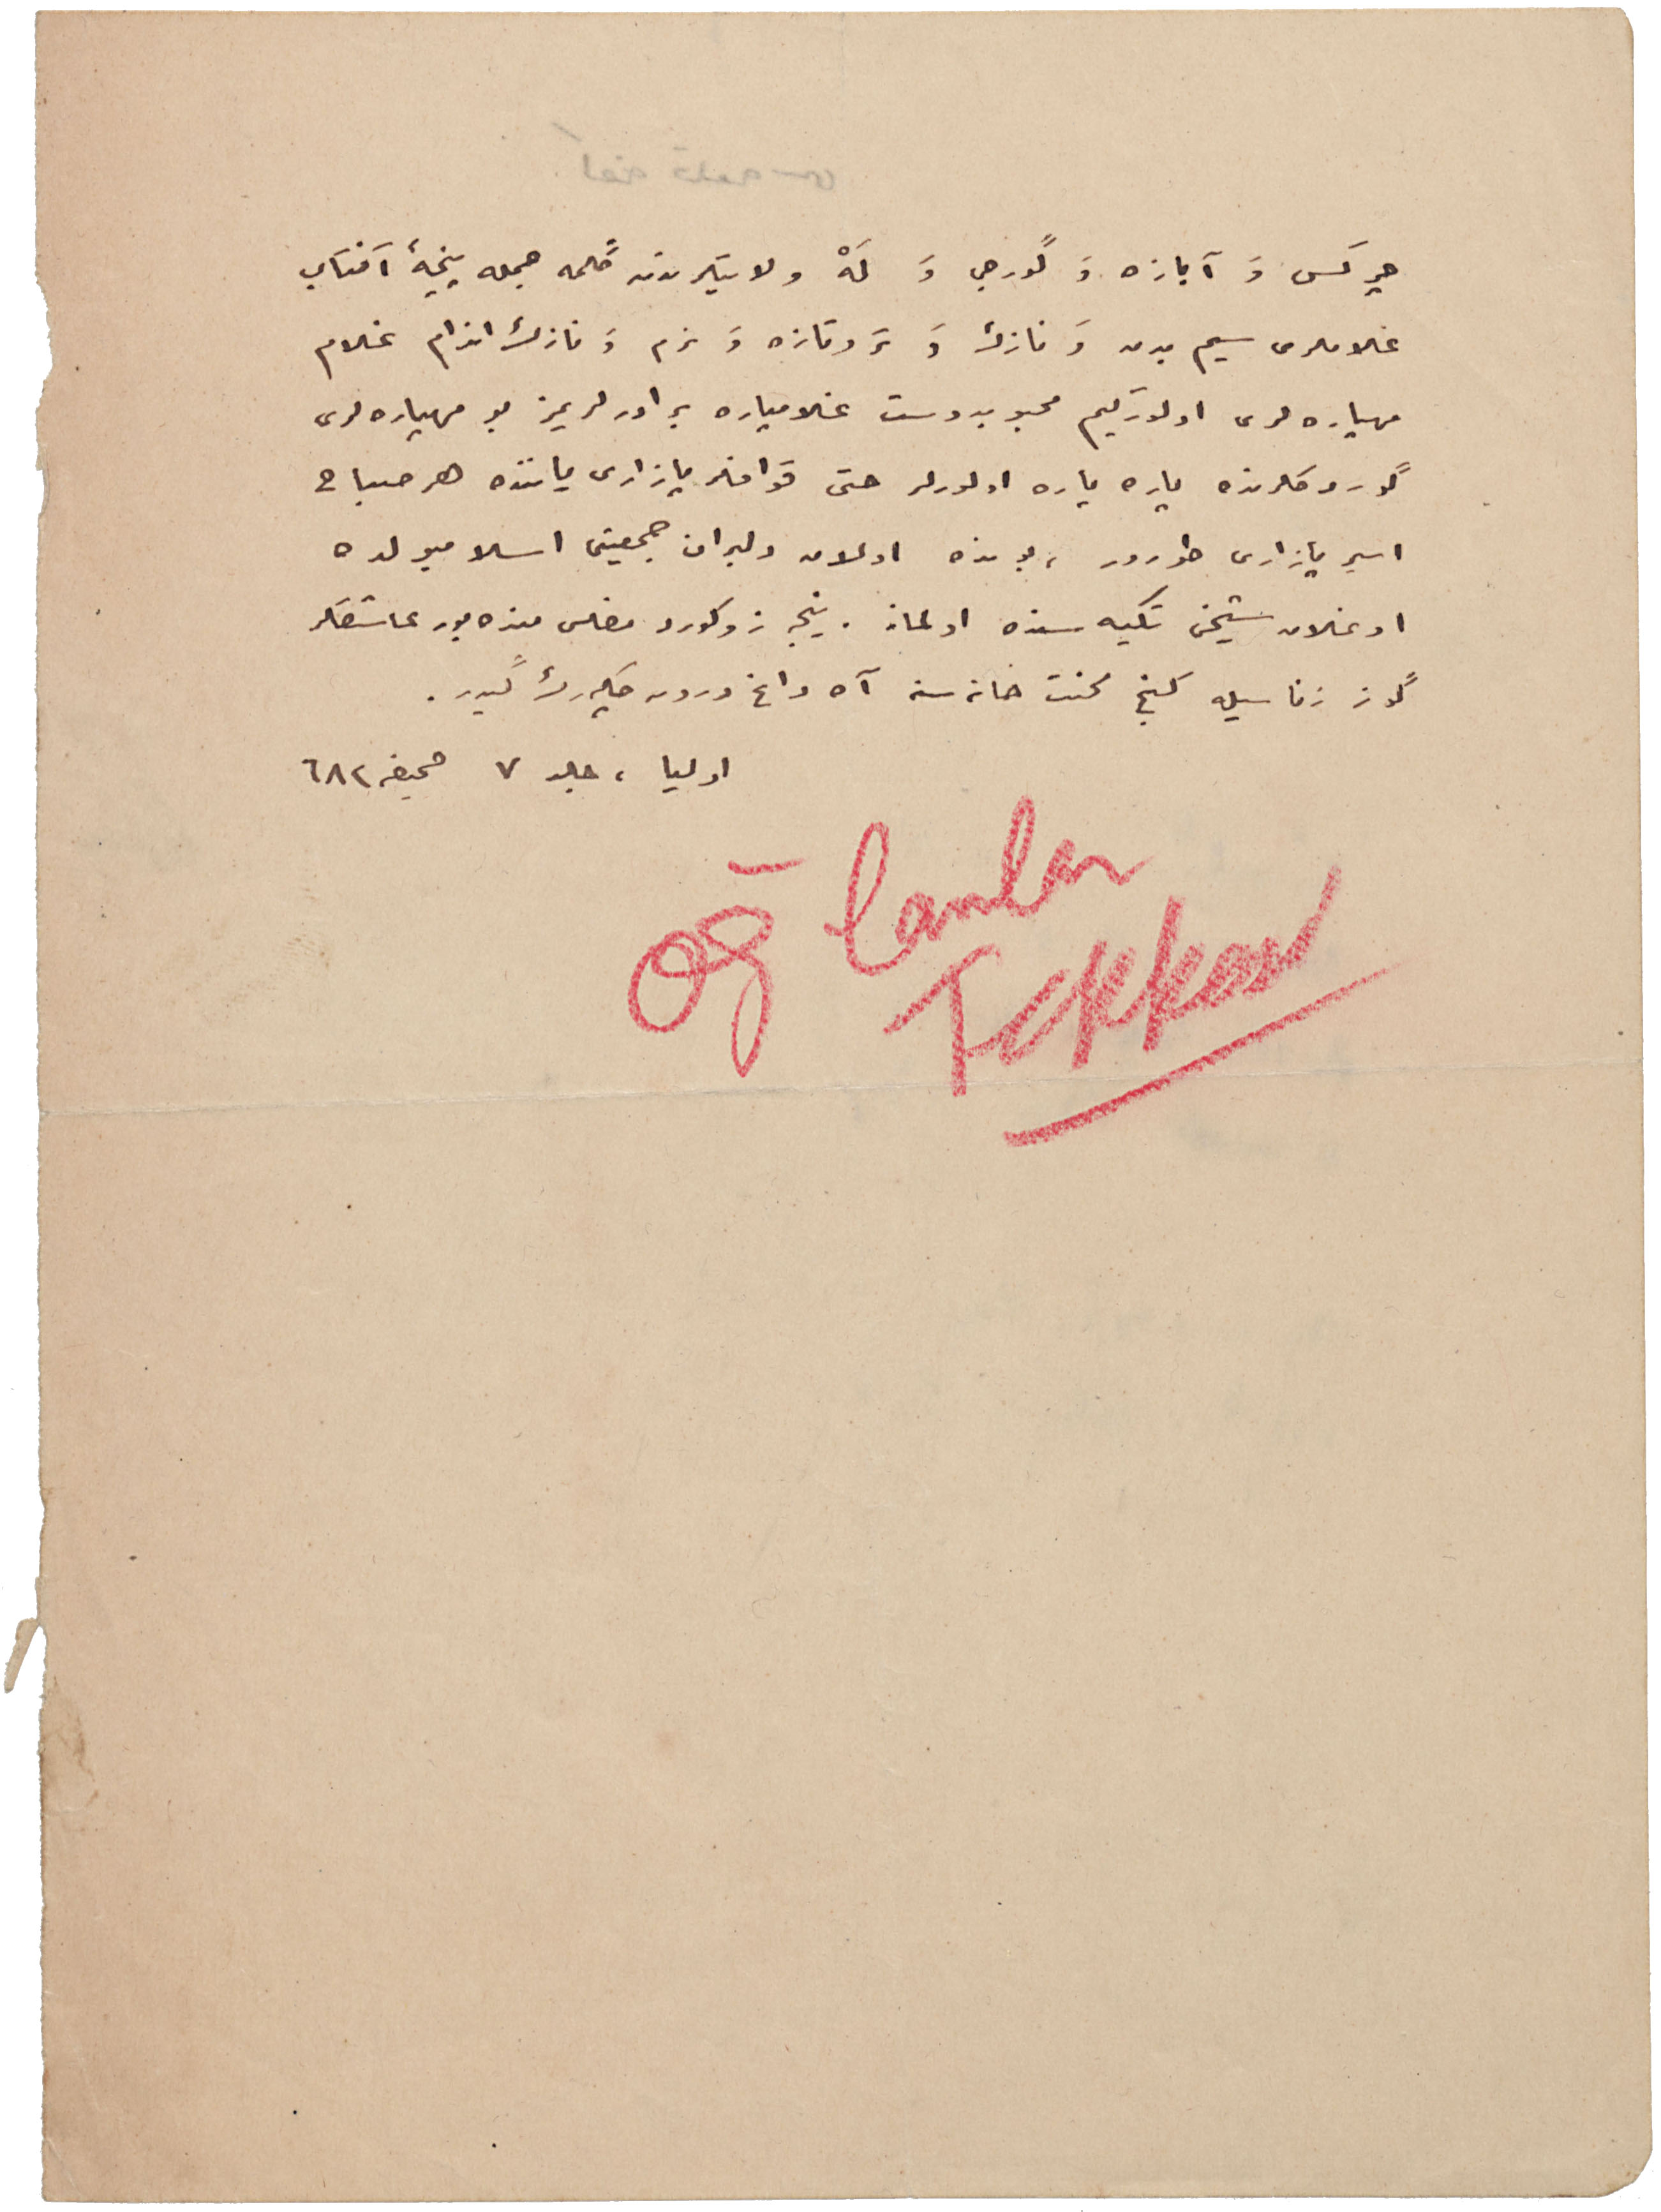 چركس وَ آبازه وَ گورجی وَ لَهْ ولايتلرندن گلمه جمله پنجۀ آفتاب
غلاملری سيم بدن وَ نازك وَ تَر و تازه وَ نرم وَ نازك اندام غلام
مهپاره لری اولوركيم محبوبدوست غلامپاره برادرلريمز بو مهپاره لری
گوردكلرنده پاره پاره اولورلر حتی قوافلر پازاری ياننده هر صباح
اسير پازاری طورور ، بونده اولان دلبران جمعيتی اسلامبولده
اوغلان شيخی تكيه سنده اولماز . نيجه زوكورد مفلس مزبور عاشقلر
گوز زناسيله كنج محنت خانه سنه آه داغ درون چكه رك گيدر .
اوليا ، جلد ٧ صحيفه ٦٨٢
Oğlanlar
Tekkesi